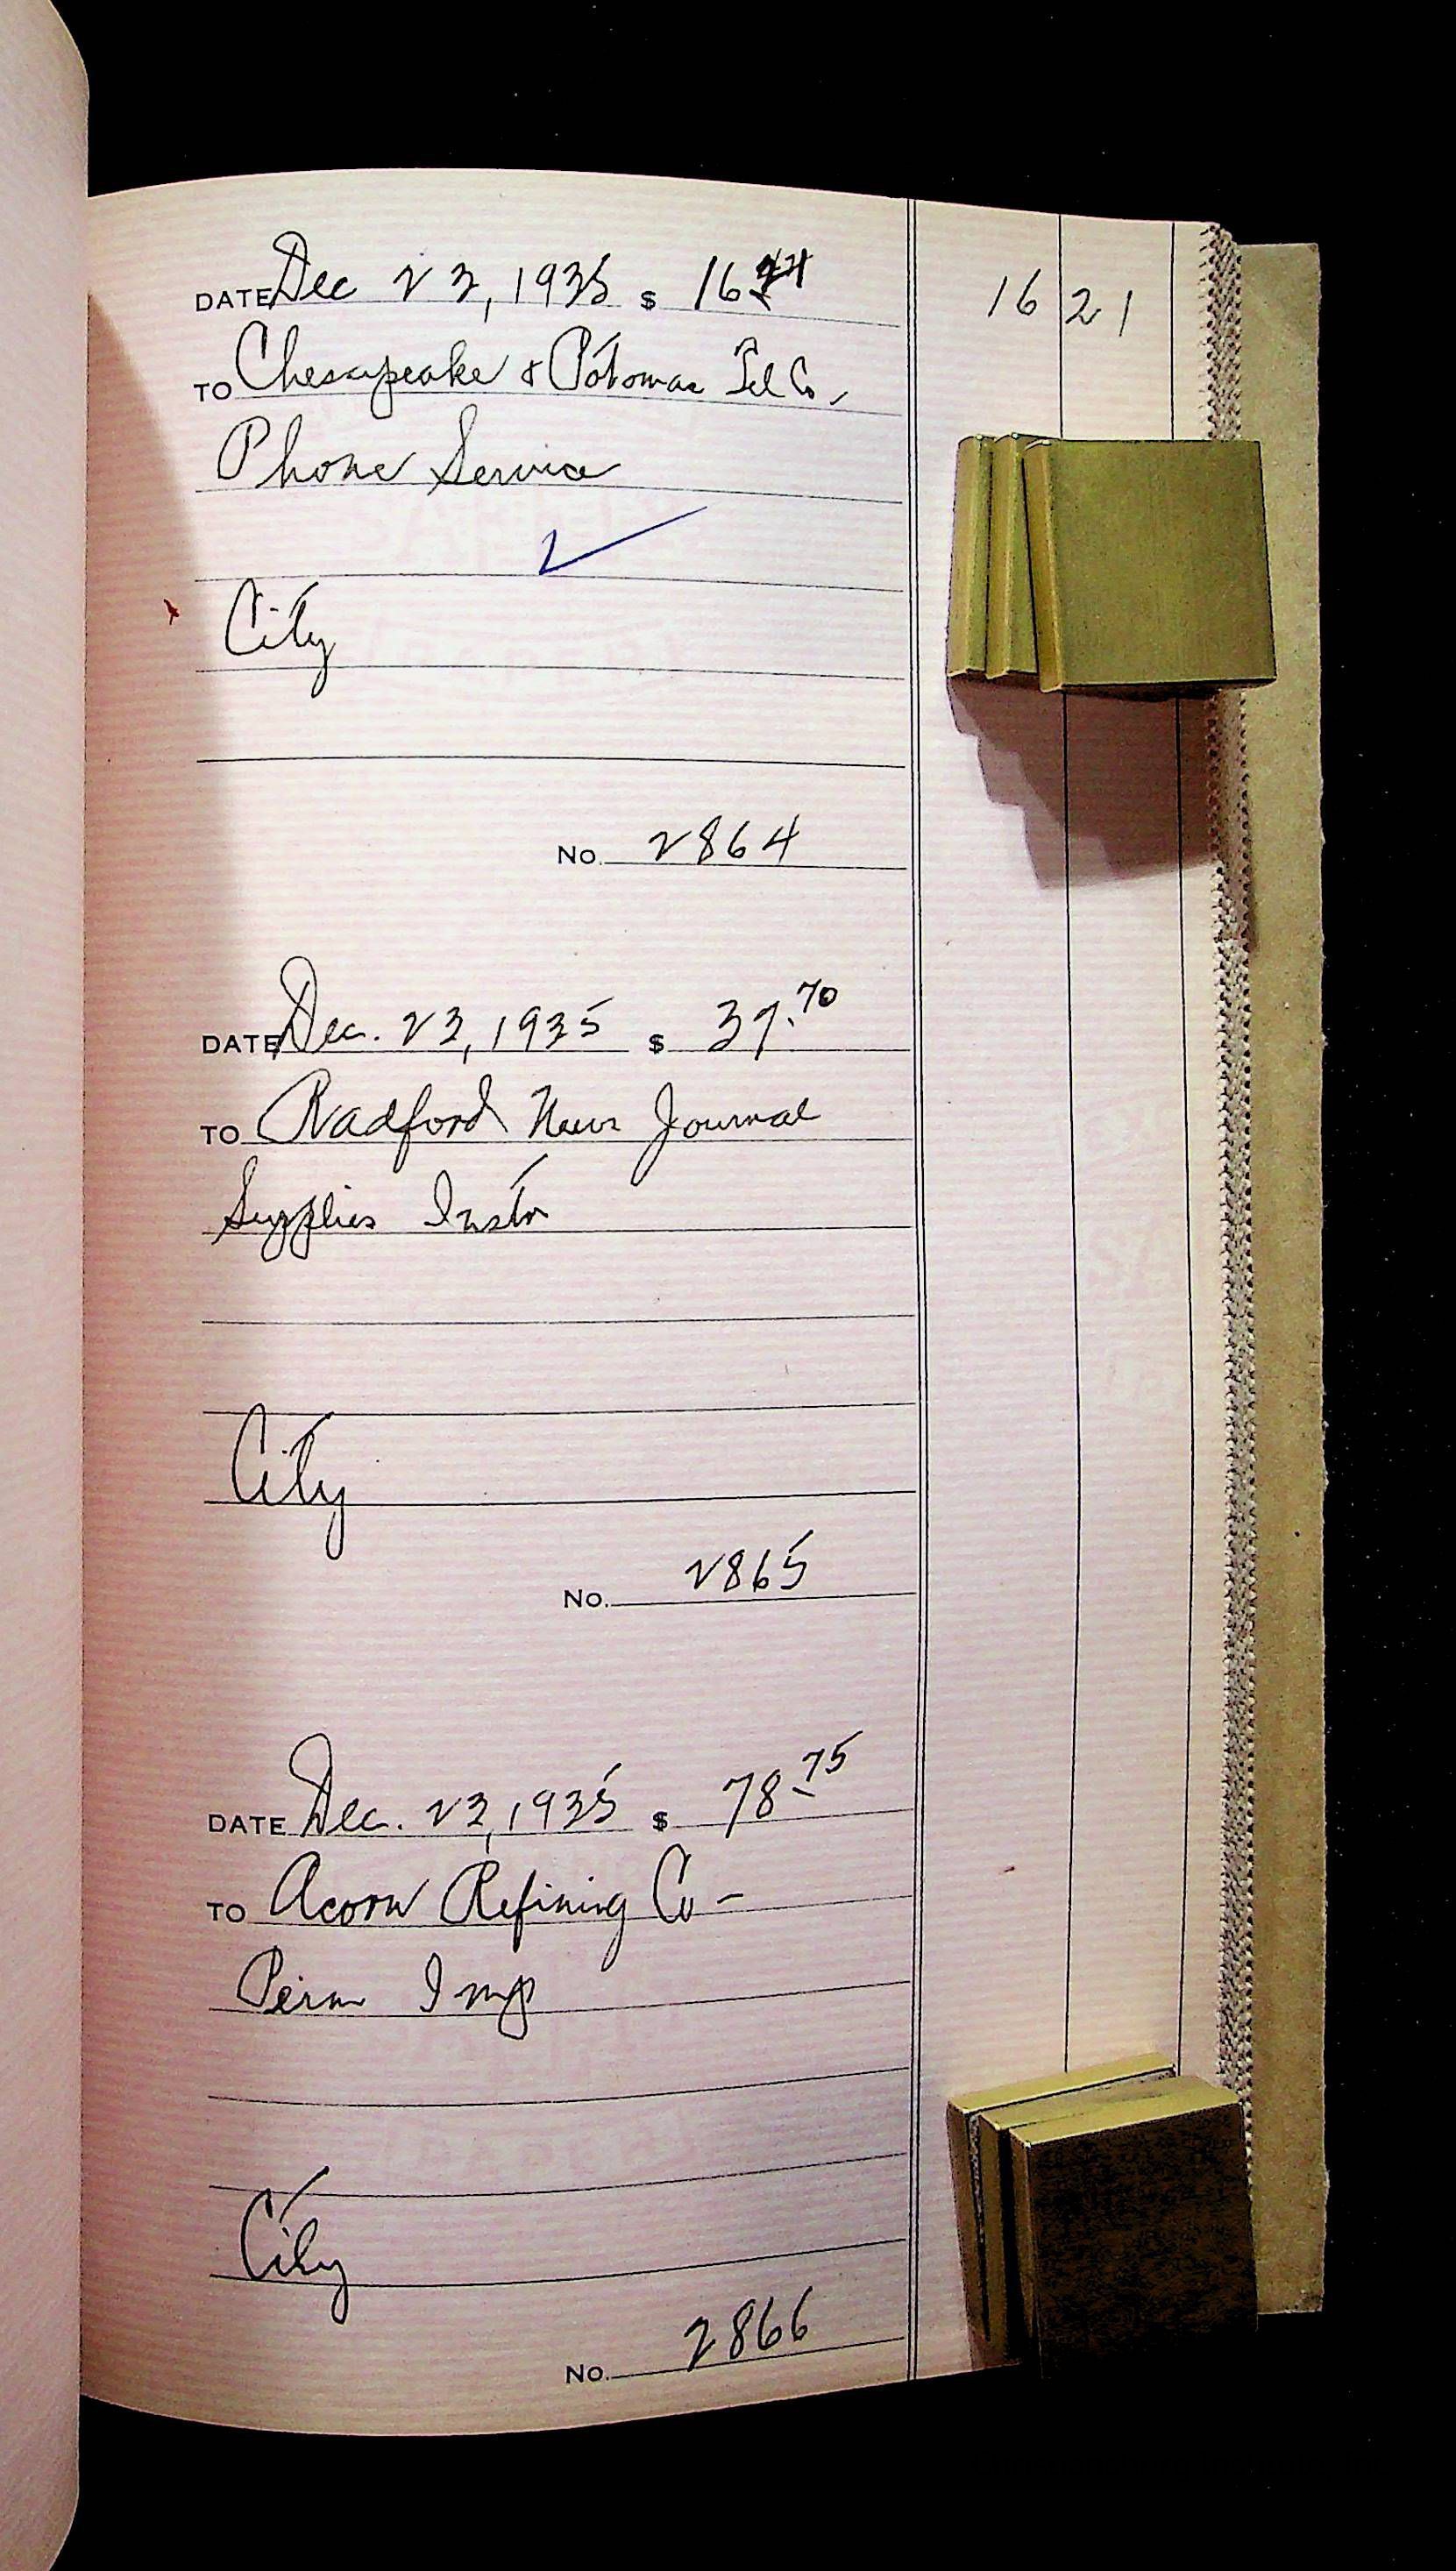 DATE Dec 23, 1935 $ 16 16 21
TO Chesapeake & Potomac Tel Co.
Phone Service
City
No. 2864
DATE Dec. 23, 1935 $ 37.70
TO Radford News Journal
Supplies Instr
City
No. 2865
DATE Dec. 23, 1935 $ 78.75
TO Acorn Refining Co -
Perm Imp
City
No. 2866